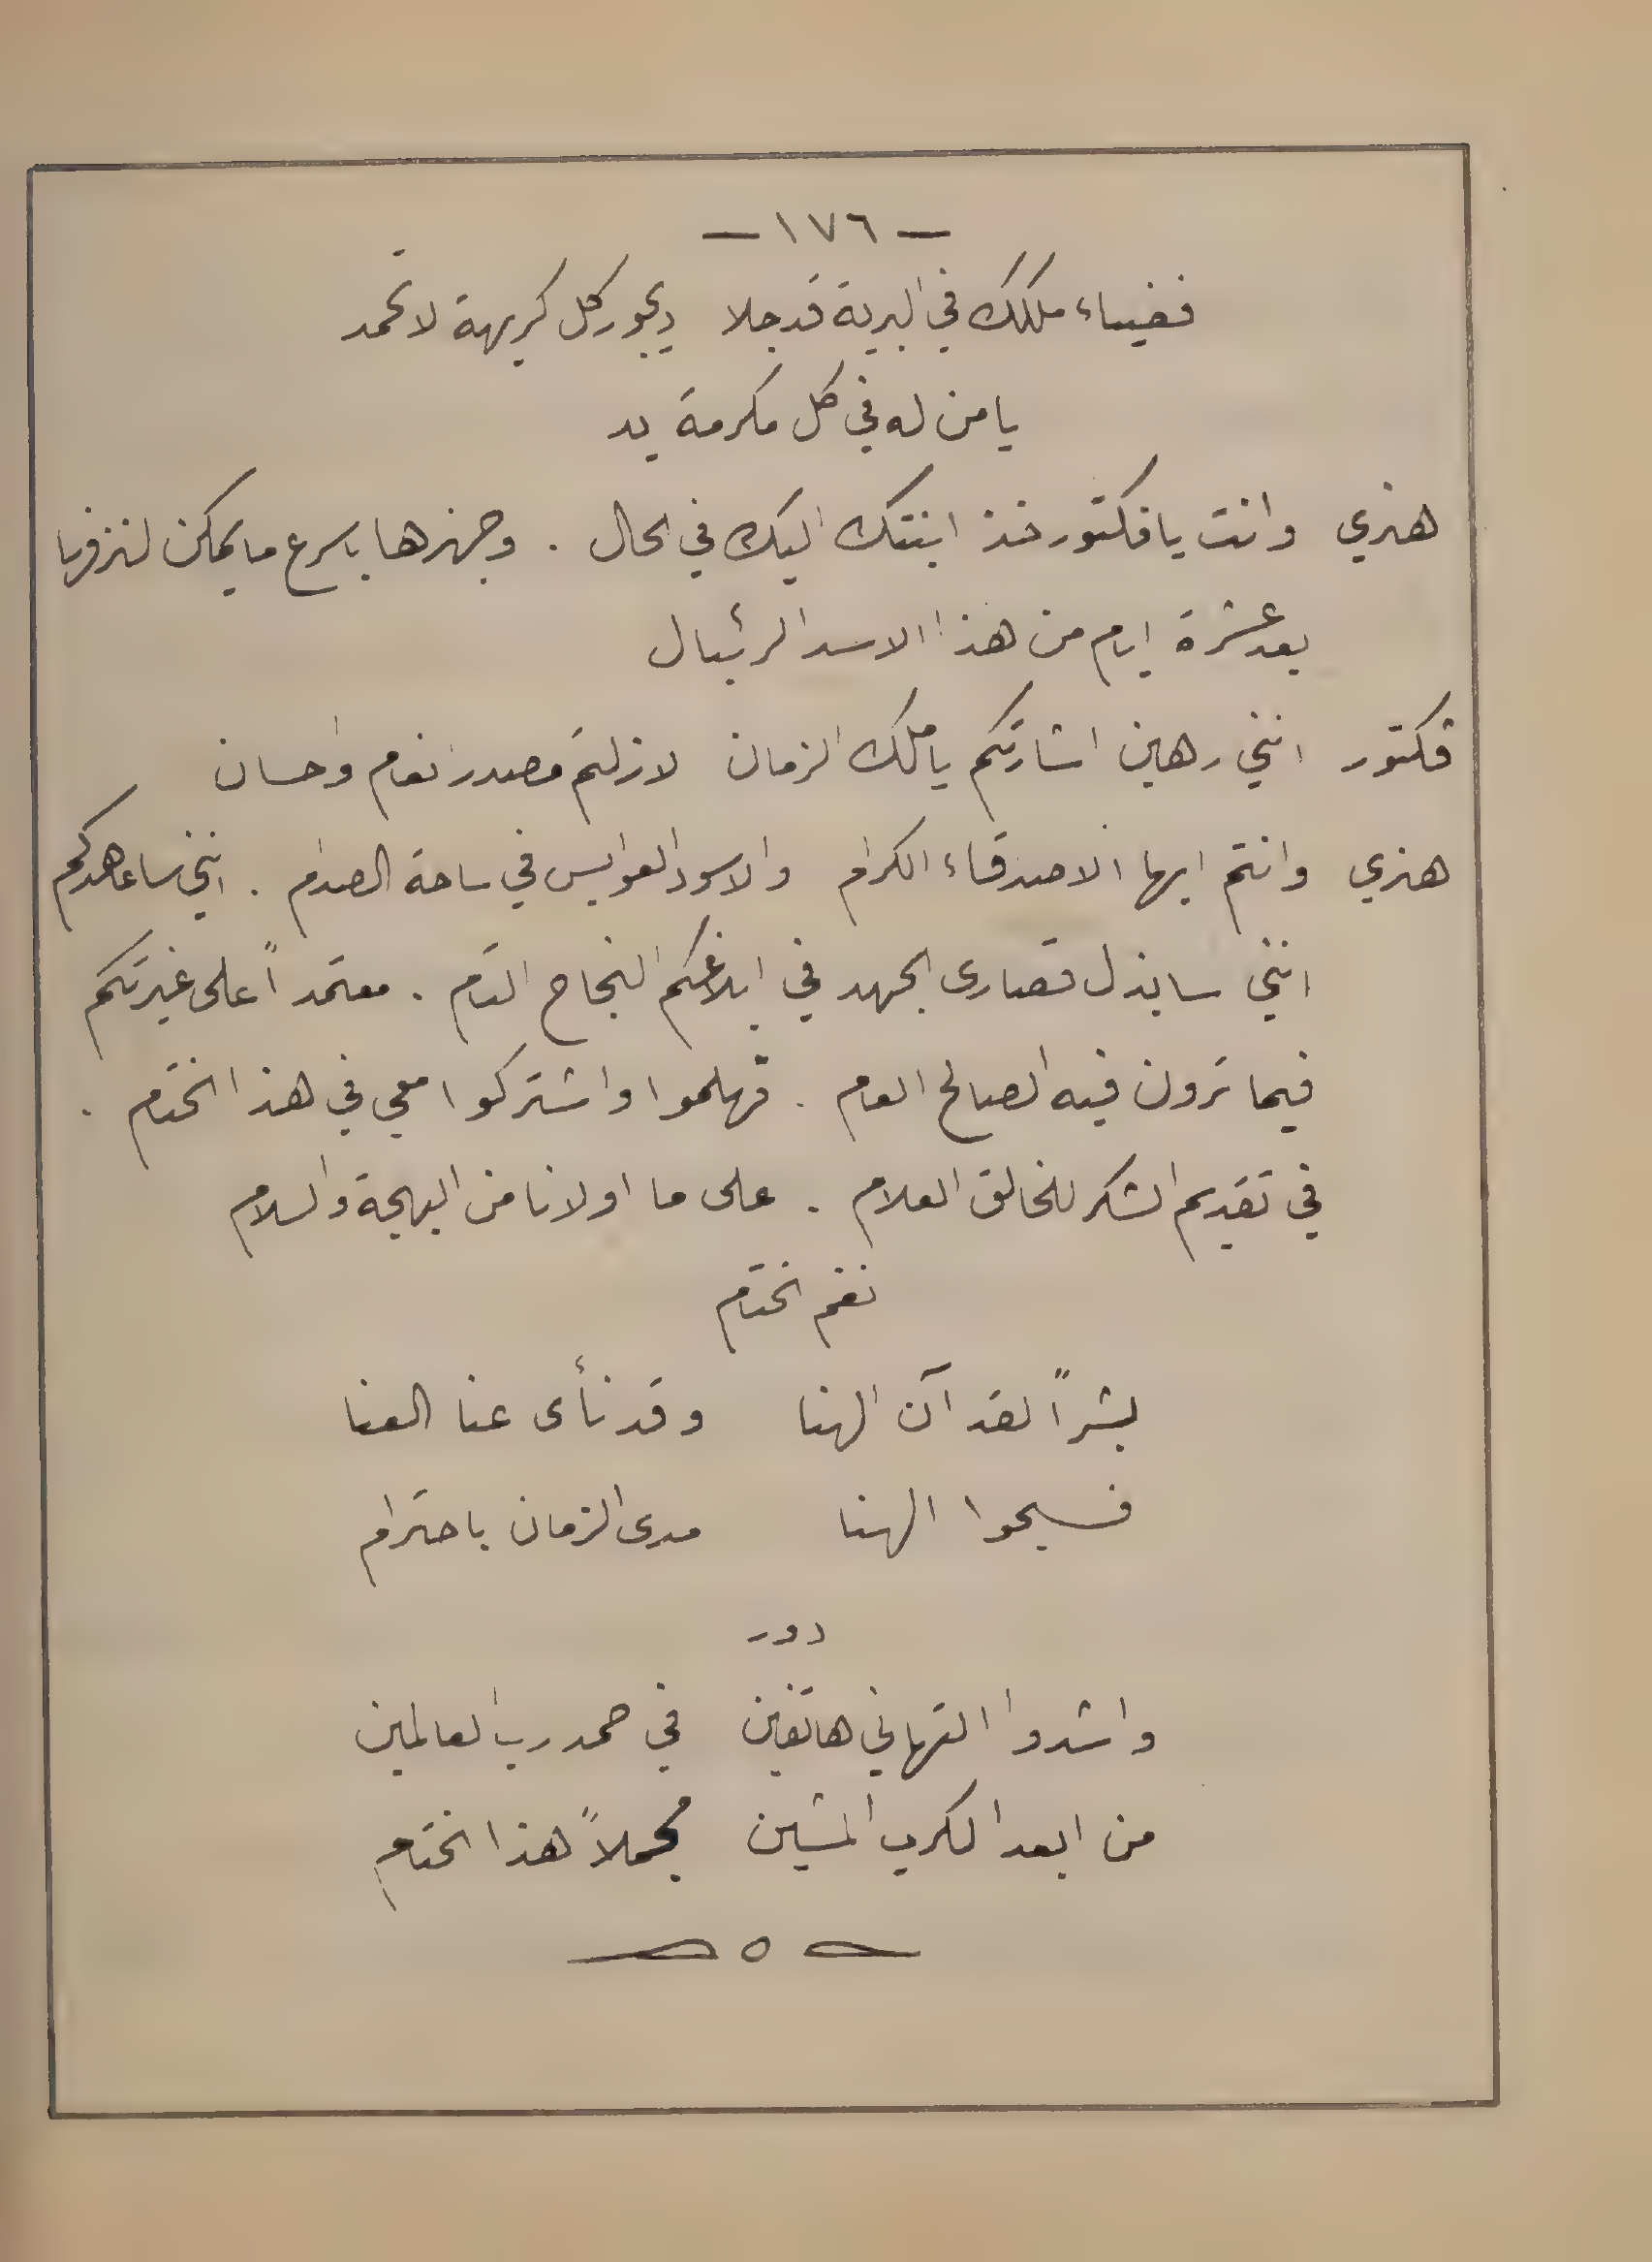 — ١٧٦ —
فضياء ملكك في البرية قد جلا ديجور كل كريهة لا تحمد
يا من له في كل مكرمة يد
هنري وانت يا فكتور خذ ابنتك اليك في الحال . وجهزها باسرع ما يمكن لنزفها
بعد عشرة ايام من هذا الاسد الرئبال
فكتور انني رهين اشارتكم يا ملك الزمان لا زلتم مصدر انعام واحسان
هنري وانتم ايها الاصدقاء الكرام والاسود العوابس في ساحة الصدام . انني ساعاهدكم
انني سابذل قصارى الجهد في ابلاغكم النجاح التام . معتمداً على غيرتكم
فيما ترون فيه الصالح العام . فهلموا واشتركوا معي في هذا الختام .
في تقديم الشكر للخالق العلام . على ما اولانا من البهجة والسلام
نغم الختام
بشراً لقد آن الهنا وقد نأى عنا العنا
فسبحوا الهنا مدى الزمان باحترام
دور
واشدوا التهاني هاتفين في حمد رب العالمين
من ابعد الكرب المشين مجملاً هذا الختام